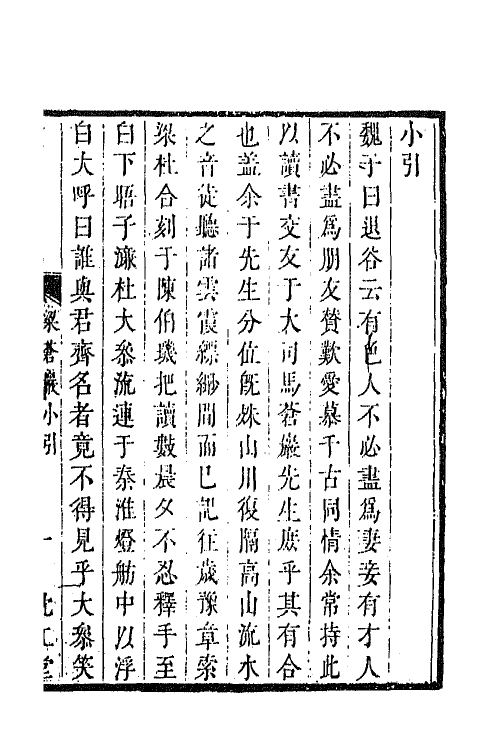 小引
魏子曰退谷云有色人不必盡爲妻妾有才人
不必盡爲朋友贊歎愛慕千古同情余常持此
以讀書交友于大司馬蒼巖先生庶乎其有合
也蓋余于先生分位既殊山川復隔高山流水
之音徒聽諸雲霞縹緲間而已記往歲豫章索
梁杜合刻于陳伯璣把讀數晨夕不忍釋手至
白下晤子濂杜大叅流連于秦淮燈舫中以浮
白大呼曰誰與君齊名者竟不得見乎大叅笑
梁蒼巖小引
一